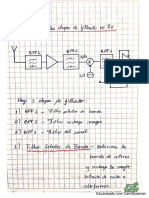 etapas de filtrado en Rx
BPF1
BPF2
BPF3
Hay 3 etapas de filtrado:
1) BPF1 - Filtro selector de banda
2) BPF2 - Filtro rechaza imagen
3) BPF3 - Filtro del canal
1) Filtro Selector de Banda: Selecciona
la banda de interes
y rechaza la mayor
Escaneado con CamScanner